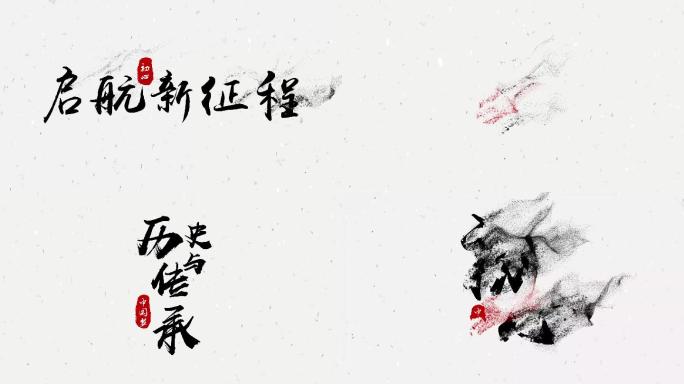 启航新征程
初心
历史
与
传
承
中国梦
中